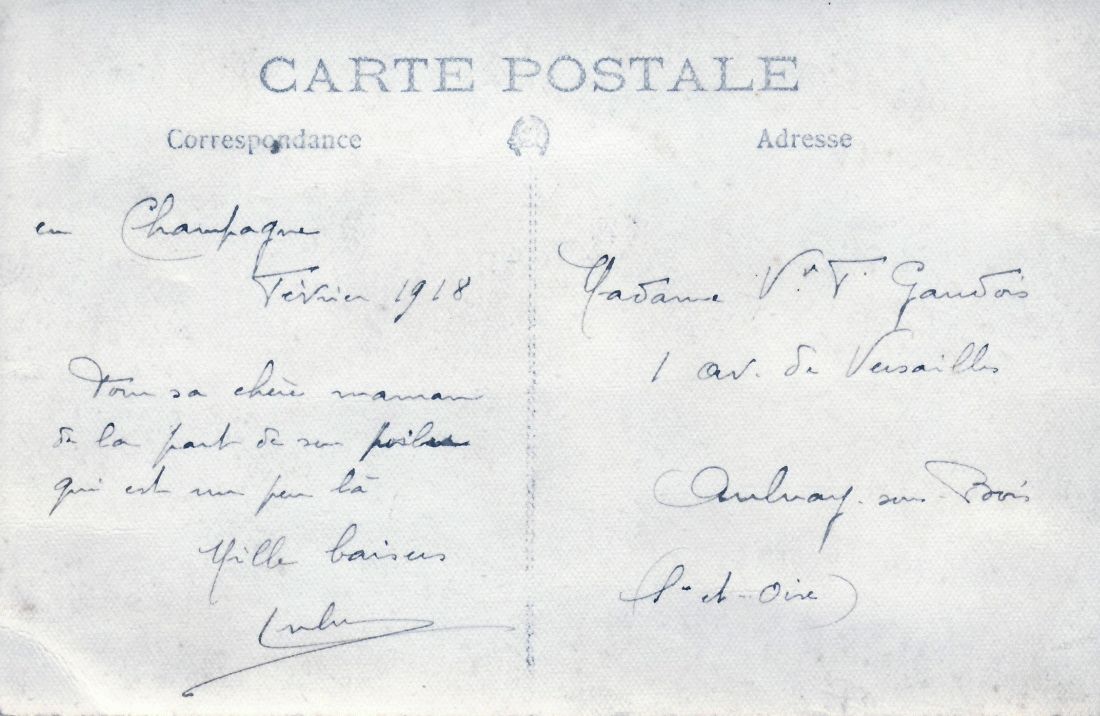 CARTE POSTALE
Correspondance
Adresse
en Champagne
Février 1918
Pour sa chère maman
de la part de son poilu
qui est un peu là
Mille baisers
Lulu
Madame Vve T. Gaudois
1 av. de Versailles
Aulnay-sous-Bois
(S.-et-Oise)